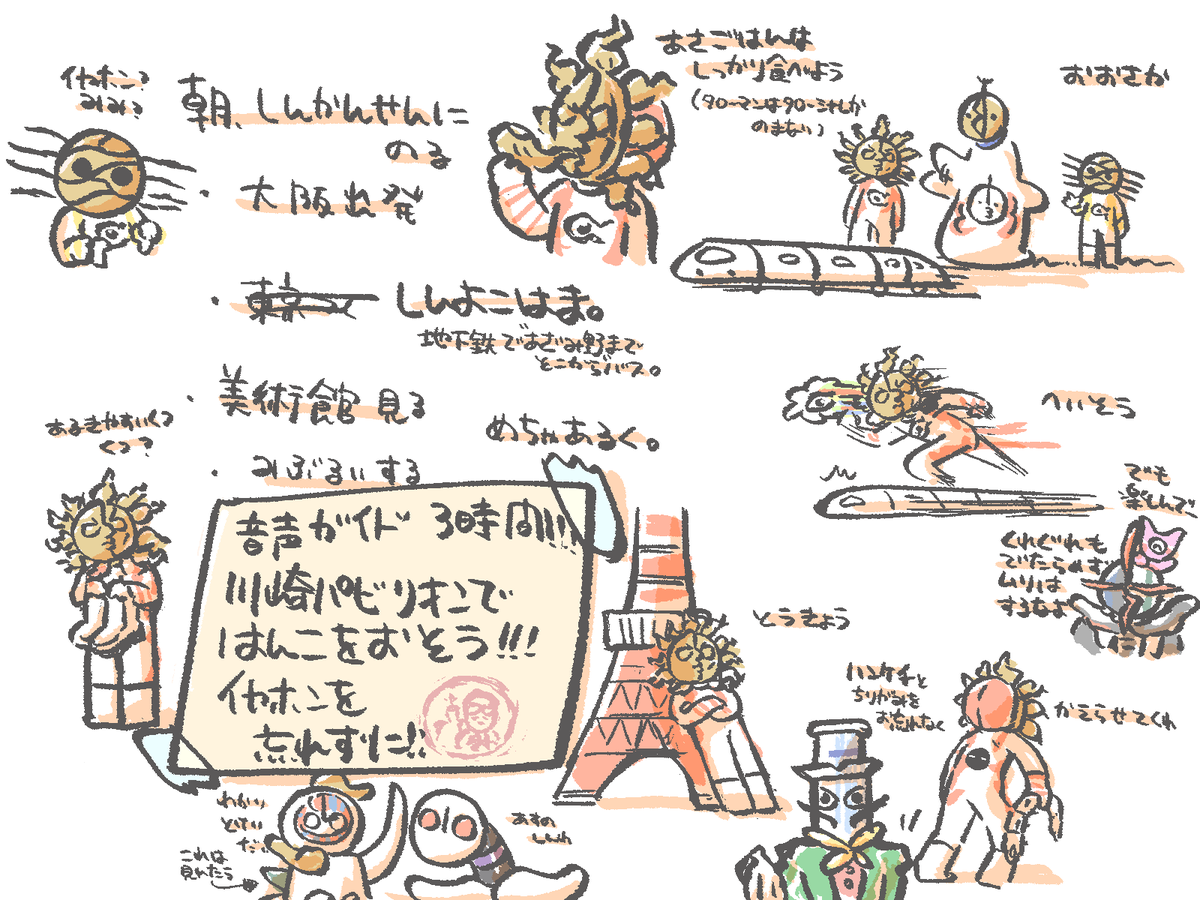 イヤホン?
みみ?
朝、しんかんせんに
のる
・大阪出発
・東京へ しんよこはま。
地下鉄であざみ野まで
そこからバス。
・美術館見る
めっちゃあるく。
・みぶるいする
あるきやすいくつ
くつ?
音声ガイド 3時間!!!
川崎パビリオンで
はんこをおそう!!!
イヤホンを
忘れずに!!
あさごはんは
しっかり食べよう
(タローマンはタロージルしか
のまない)
おおさか
へいそう
でも
楽しんで
くれぐれも
でたらめな
ムリは
するなよ
とうきょう
ハンカチと
ちりがみを
お忘れなく
かえらせてくれ
わかい
とけい
だい
これは
見れたら
あすの
しんわ